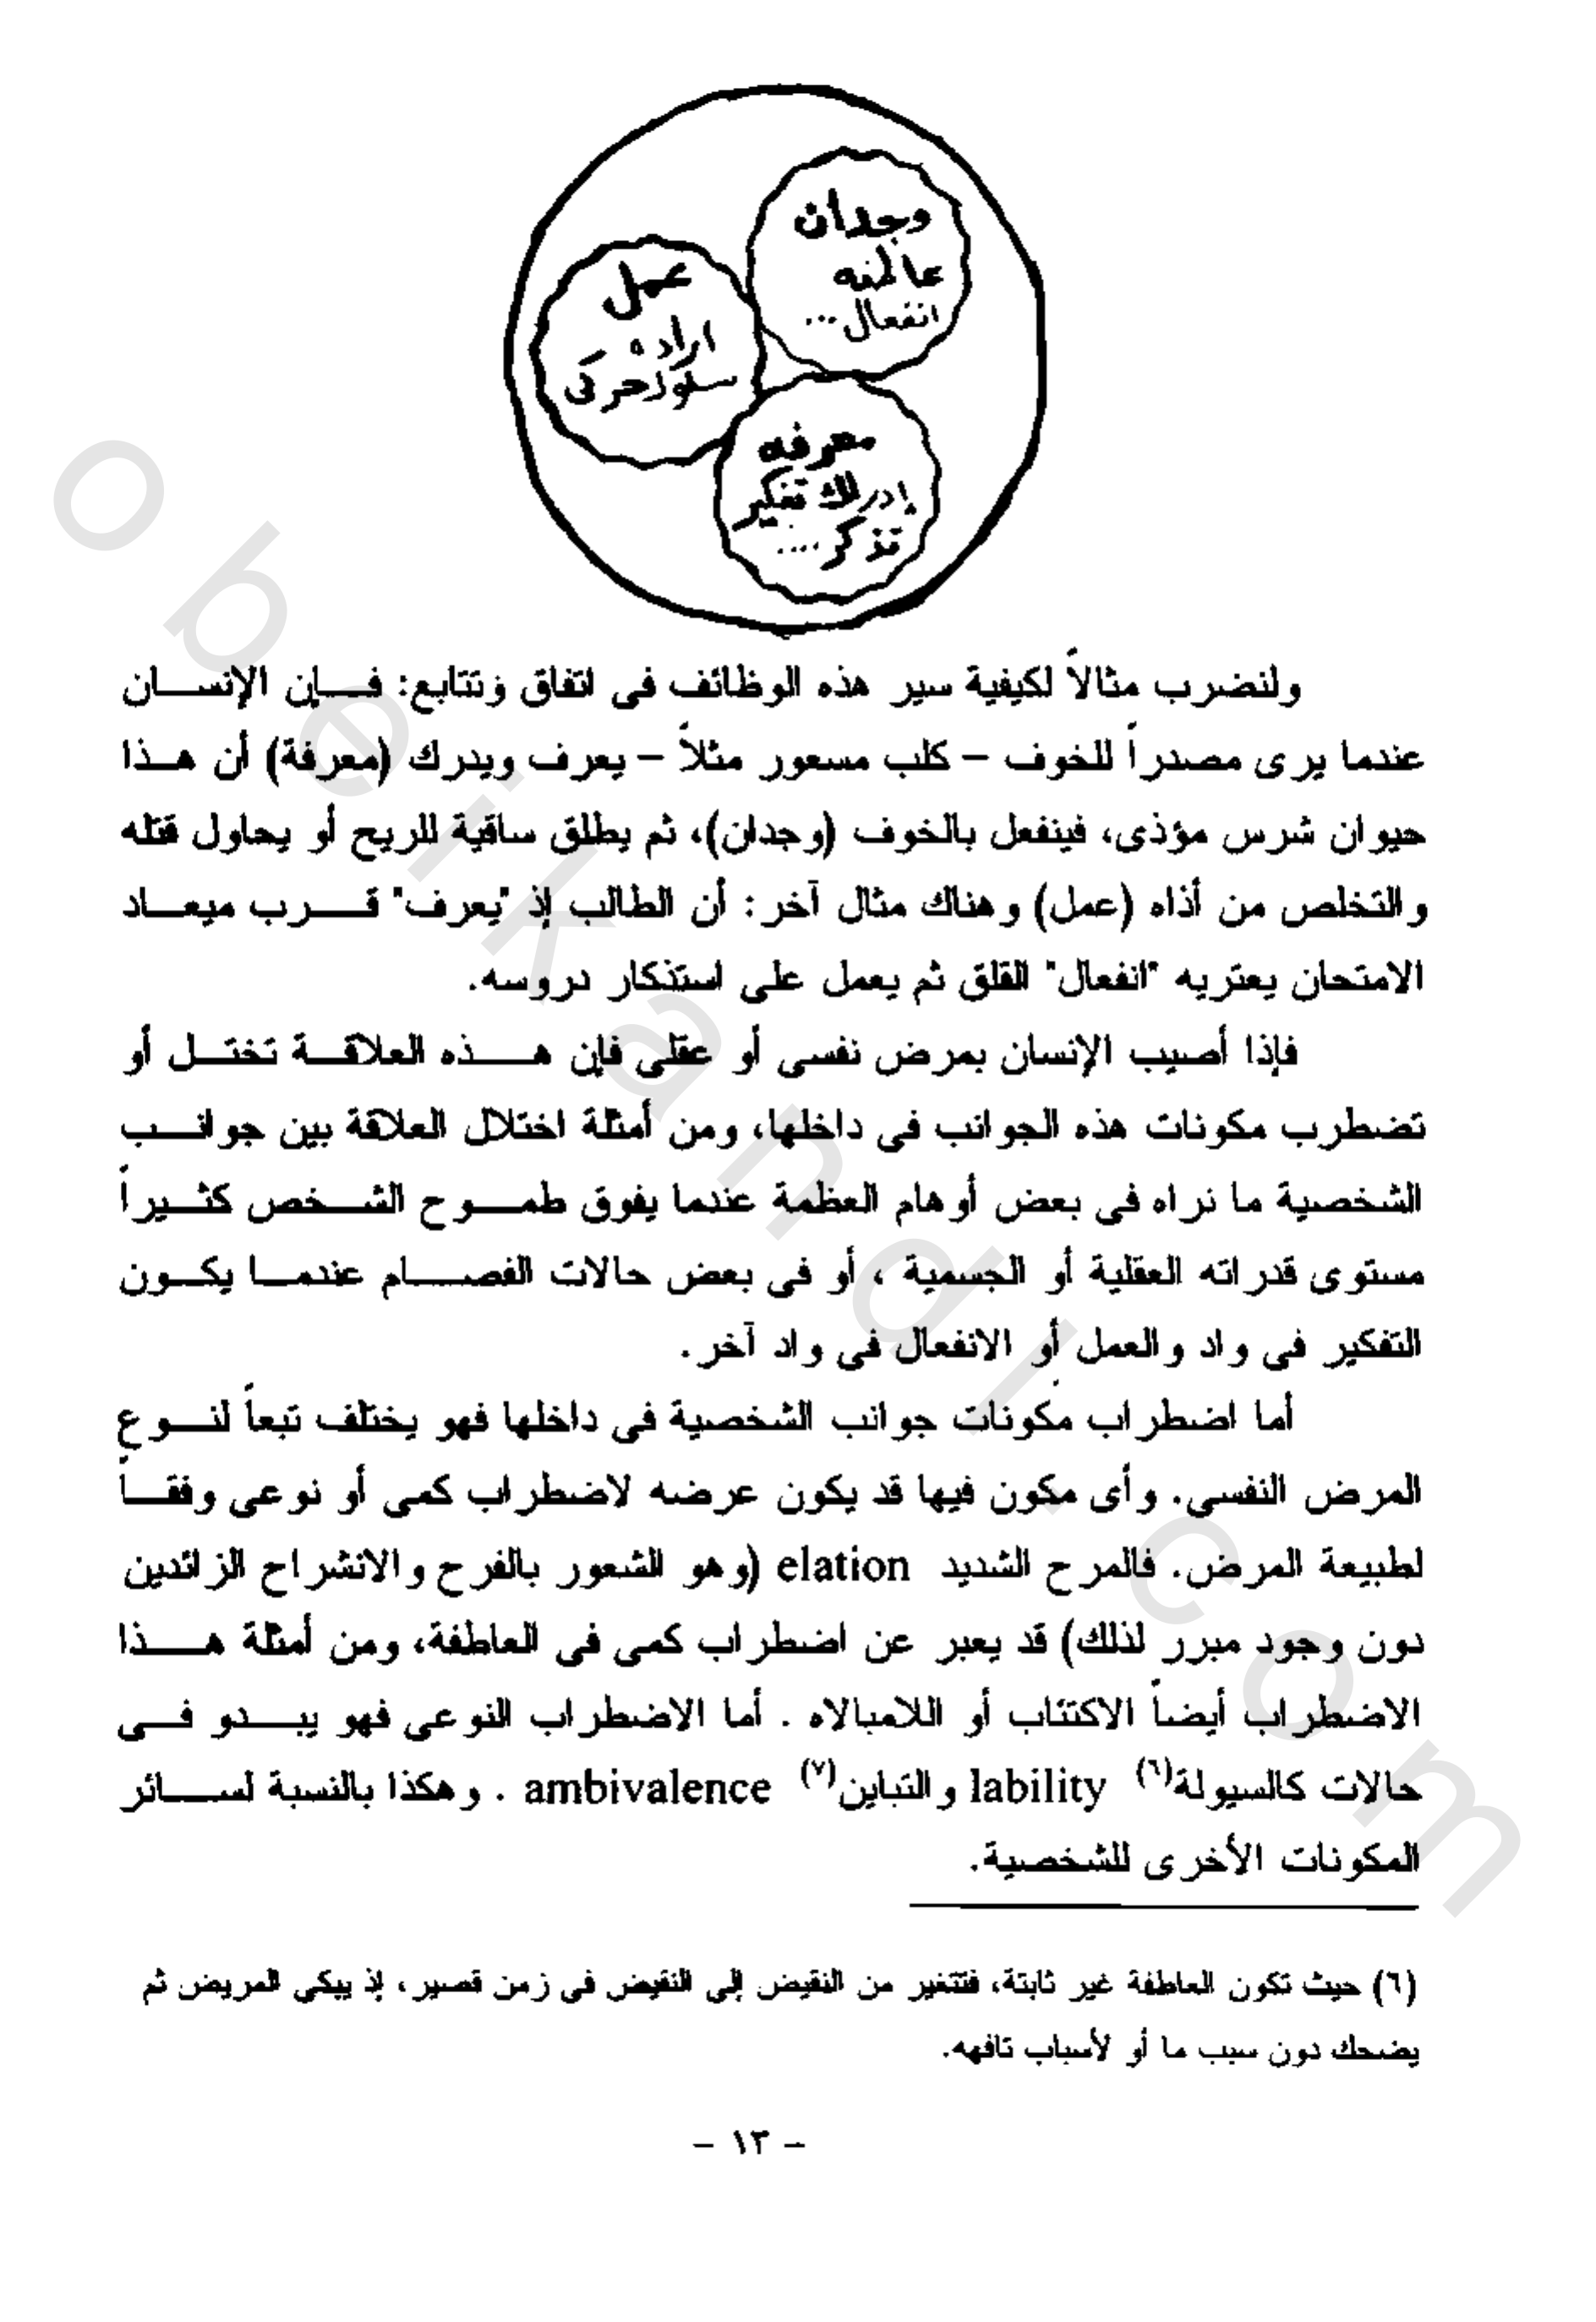 وجدان
عاطفه
انفعال...
عمل
اراده
سلوك حركى
معرفه
إدراك تفكير
تذكر....
ولنضرب مثالاً لكيفية سير هذه الوظائف فى اتفاق وتتابع: فإن الإنسان
عندما يرى مصدراً للخوف – كلب مسعور مثلاً – يعرف ويدرك (معرفة) أن هذا
حيوان شرس مؤذى، فينفعل بالخوف (وجدان)، ثم يطلق ساقية للريح أو يحاول قتله
والتخلص من أذاه (عمل) وهناك مثال آخر: أن الطالب إذ "يعرف" قرب ميعاد
الامتحان يعتريه "انفعال" القلق ثم يعمل على استذكار دروسه.
فإذا أصيب الإنسان بمرض نفسى أو عقلى فإن هذه العلاقة تختل أو
تضطرب مكونات هذه الجوانب فى داخلها، ومن أمثلة اختلال العلاقة بين جوانب
الشخصية ما نراه فى بعض أوهام العظمة عندما يفوق طموح الشخص كثيراً
مستوى قدراته العقلية أو الجسمية ، أو فى بعض حالات الفصام عندما يكون
التفكير فى واد والعمل أو الانفعال فى واد آخر.
أما اضطراب مكونات جوانب الشخصية فى داخلها فهو يختلف تبعاً لنوع
المرض النفسى. وأى مكون فيها قد يكون عرضه لاضطراب كمى أو نوعى وفقاً
لطبيعة المرض. فالمرح الشديد elation (وهو الشعور بالفرح والانشراح الزائدين
دون وجود مبرر لذلك) قد يعبر عن اضطراب كمى فى العاطفة، ومن أمثلة هذا
الاضطراب أيضاً الاكتئاب أو اللامبالاه . أما الاضطراب النوعى فهو يبدو فى
حالات كالسيولة(٦) lability والتباين(٧) ambivalence . وهكذا بالنسبة لسائر
المكونات الأخرى للشخصية.
(٦) حيث تكون العاطفة غير ثابتة، فتتغير من النقيض إلى النقيض فى زمن قصير، إذ يبكى المريض ثم
يضحك دون سبب ما أو لأسباب تافهه.
– ١٣ –
obeikandl.com